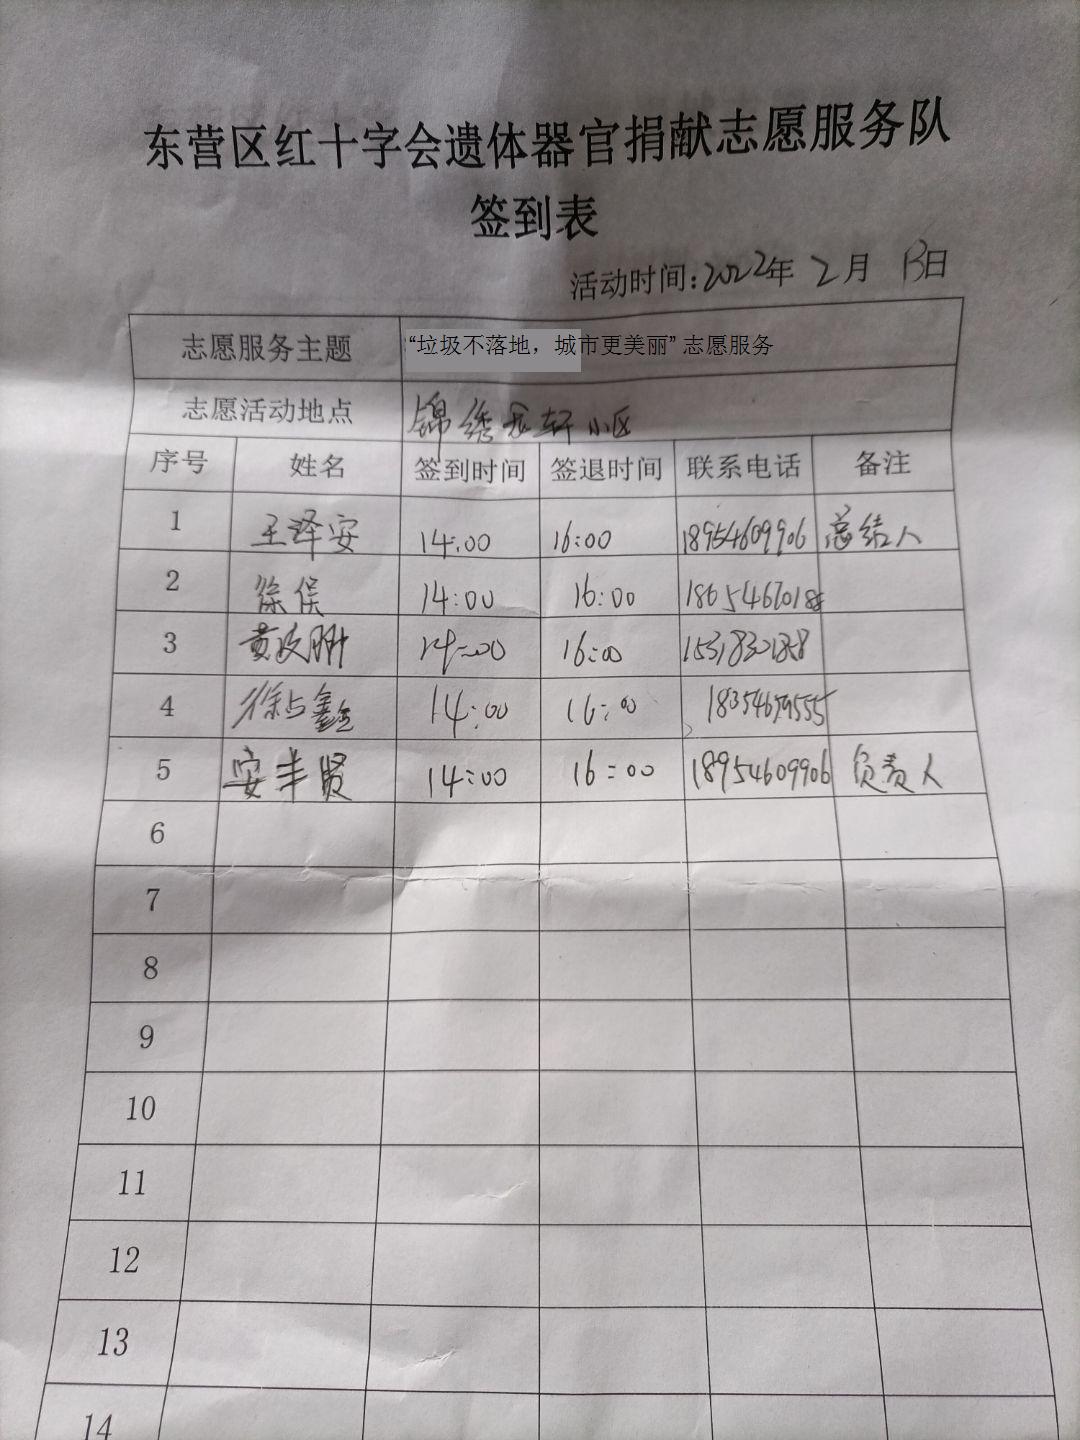 东营区红十字会遗体器官捐献志愿服务队
签到表
活动时间:2022年 2月 13日
志愿服务主题 “垃圾不落地，城市更美丽” 志愿服务
志愿活动地点 锦绣龙轩小区
序号 姓名 签到时间 签退时间 联系电话 备注
1 王泽安 14:00 16:00 18954609906 总结人
2 徐俣 14:00 16:00
3 14:00 16:00
4 徐占鑫 14:00 16:00 18354679555
5 安丰贤 14:00 16:00 18954609906 负责人
6
7
8
9
10
11
12
13
14